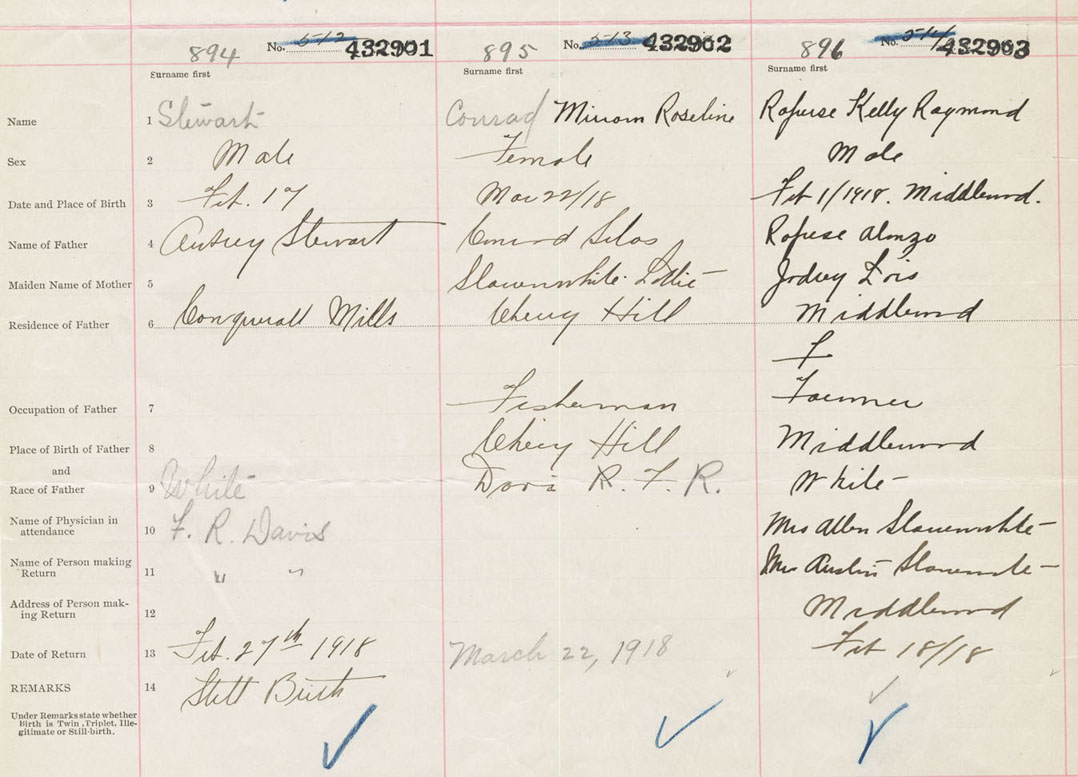 894 No. 512 432901 895 No. 513 432902 896 No. 514 432903
Surname first Surname first Surname first
Name 1 Stewart Conrad Miriom Roseline Rafuse Kelly Raymond
Sex 2 Male Female Male
Date and Place of Birth 3 Feb. 17 Mar 22/18 Feb 1/1918. Middlewood.
Name of Father 4 Autrey Stewart Conrad Silas Rafuse Alonzo
Maiden Name of Mother 5 Slauenwhite Lottie Jodrey Lois
Residence of Father 6 Conquerall Mills Cherry Hill Middlewood
F
Occupation of Father 7 Fisherman Farmer
Place of Birth of Father 8 Cherry Hill Middlewood
and
Race of Father 9 White Davis R. F. R. White
Name of Physician in
attendance 10 F. R. Davis Mrs Allen Slauenwhite
Name of Person making
Return 11 " " Mrs Austin Slauenwhite
Address of Person mak-
ing Return 12 Middlewood
Date of Return 13 Feb. 27th 1918 March 22, 1918 Feb 18/18
REMARKS 14 Still Birth
Under Remarks state whether
Birth is Twin, Triplet, Ille-
gitimate or Still-birth.